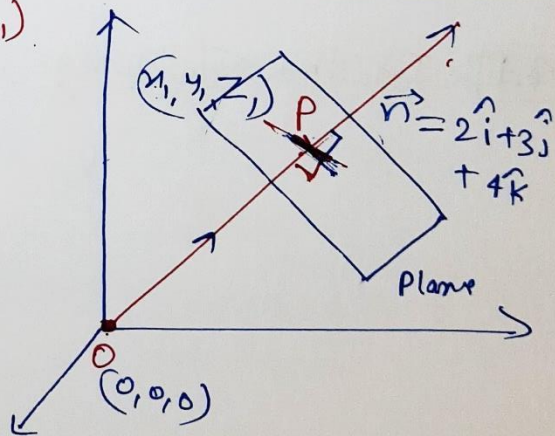 1)
(x₁, y₁, Z₁)
P
n⃗ = 2î+3ĵ
+ 4k̂
Plane
O
(0,0,0)